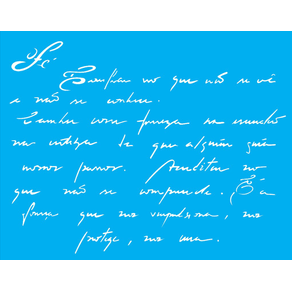 Fé
É confiar no que não se vê
e não se conhece.
Caminhar com firmeza na escuridão
na certeza de que alguém guia
nossos passos. Acreditar no
que não se compreende. É a
força que nos impulsiona, nos
proteje, nos une.